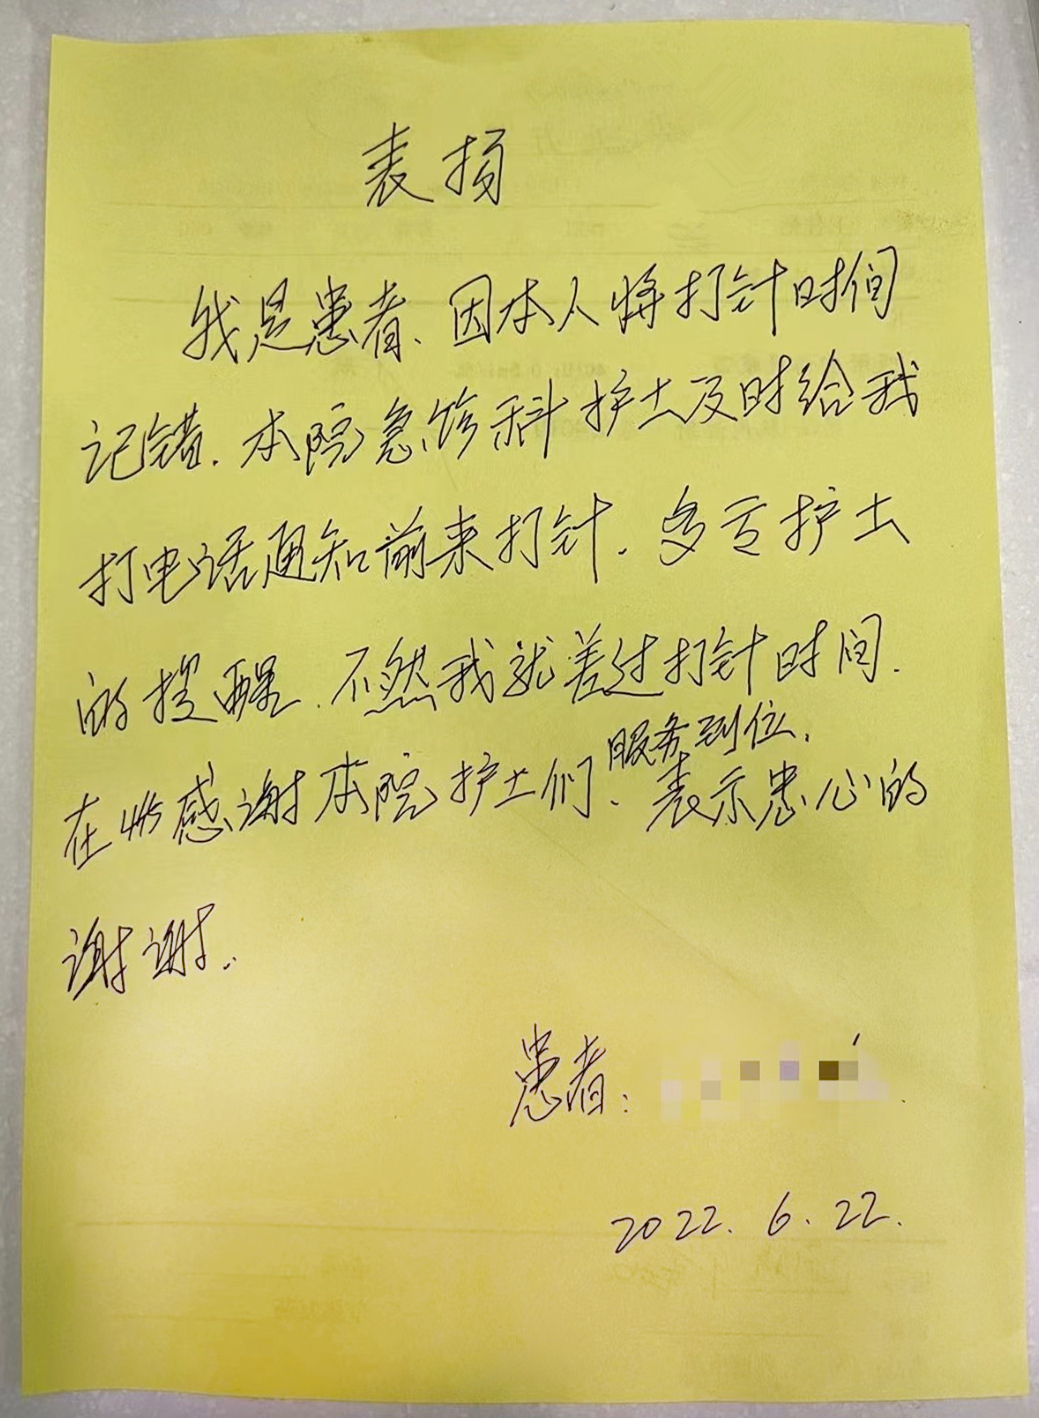 表扬
我是患者、因本人将打针时间
记错.本院急诊科护士及时给我
打电话通知前来打针.多亏护士
的提醒.不然我就差过打针时间.
在此感谢本院护士们、服务到位.表示忠心的
谢谢..
患者:
2022.6.22.